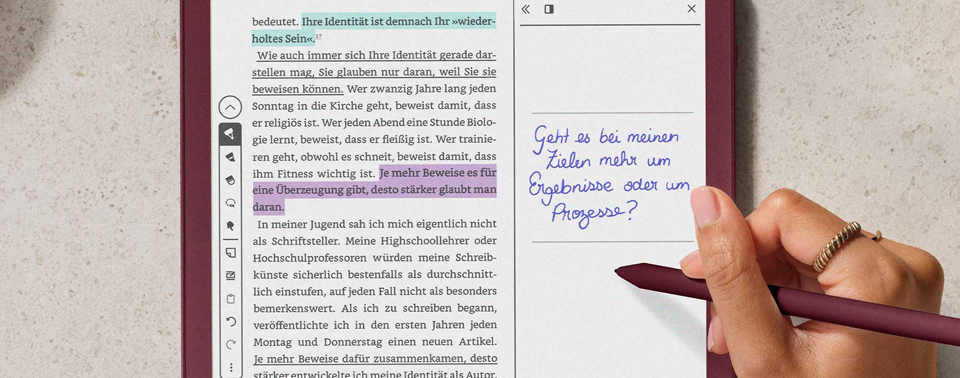 bedeutet. Ihre Identität ist demnach Ihr »wieder-
holtes Sein«.17
Wie auch immer sich Ihre Identität gerade dar-
stellen mag, Sie glauben nur daran, weil Sie sie
beweisen können. Wer zwanzig Jahre lang jeden
Sonntag in die Kirche geht, beweist damit, dass
er religiös ist. Wer jeden Abend eine Stunde Biolo-
gie lernt, beweist, dass er fleißig ist. Wer trainie-
ren geht, obwohl es schneit, beweist damit, dass
ihm Fitness wichtig ist. Je mehr Beweise es für
eine Überzeugung gibt, desto stärker glaubt man
daran.
In meiner Jugend sah ich mich eigentlich nicht
als Schriftsteller. Meine Highschoollehrer oder
Hochschulprofessoren würden meine Schreib-
künste sicherlich bestenfalls als durchschnitt-
lich einstufen, auf jeden Fall nicht als besonders
bemerkenswert. Als ich zu schreiben begann,
veröffentlichte ich in den ersten Jahren jeden
Montag und Donnerstag einen neuen Artikel.
Je mehr Beweise dafür zusammenkamen, desto
stärker entwickelte ich meine Identität als Autor.
Geht es bei meinen
Zielen mehr um
Ergebnisse oder um
Prozesse?